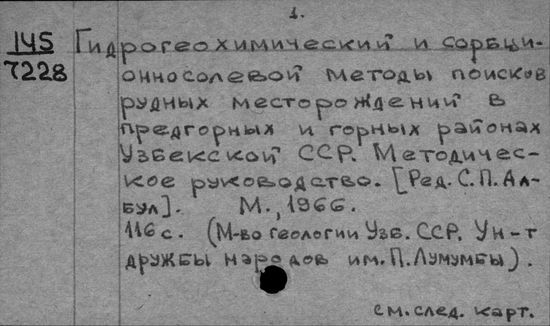 1.
145
7228
Гидрогеохимический и сорбци-
онносолевой методы поисков
рудных месторождений в
предгорных и горных районах
Узбекской ССР. Методичес-
кое руководство. [Ред. С.П. Ал-
бул]. М., 1966.
116 с. (М-во геологии Узб. ССР. Ун-т
дружбы народов им. П. Лумумбы).
см. след. карт.